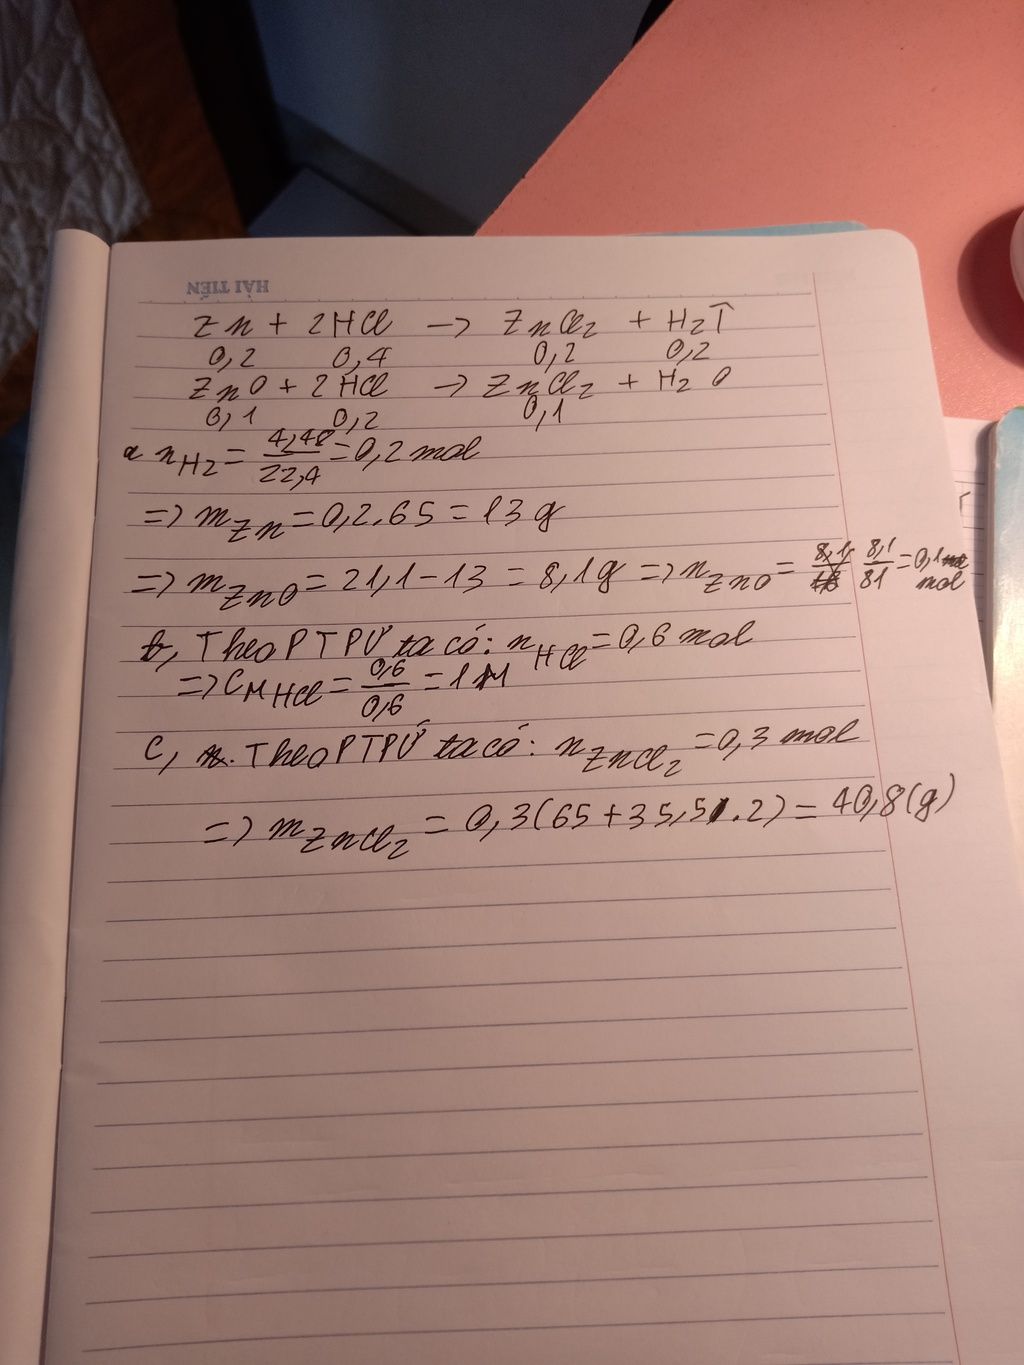 HẢI TIẾN
Zn + 2HCl → ZnCl2 + H2↑
0,2 0,4 0,2 0,2
ZnO + 2HCl → ZnCl2 + H2O
0,1 0,2 0,1
a nH2 = 4,48/22,4 = 0,2 mol
=> mZn = 0,2.65 = 13 g
=> mZnO = 21,1 - 13 = 8,1g => nZnO = 8,1/81 = 0,1 mol
b, Theo PTPƯ ta có: nHCl = 0,6 mol
=> CM HCl = 0,6/0,6 = 1M
c, Theo PTPƯ ta có: nZnCl2 = 0,3 mol
=> mZnCl2 = 0,3(65 + 35,5.2) = 40,8(g)